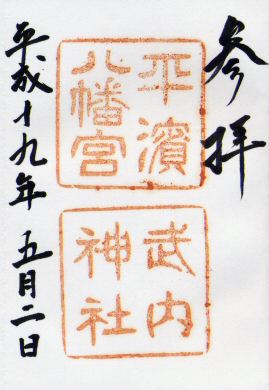 参拝
平濱
八幡宮
武内
神社
平成十九年 五月二日